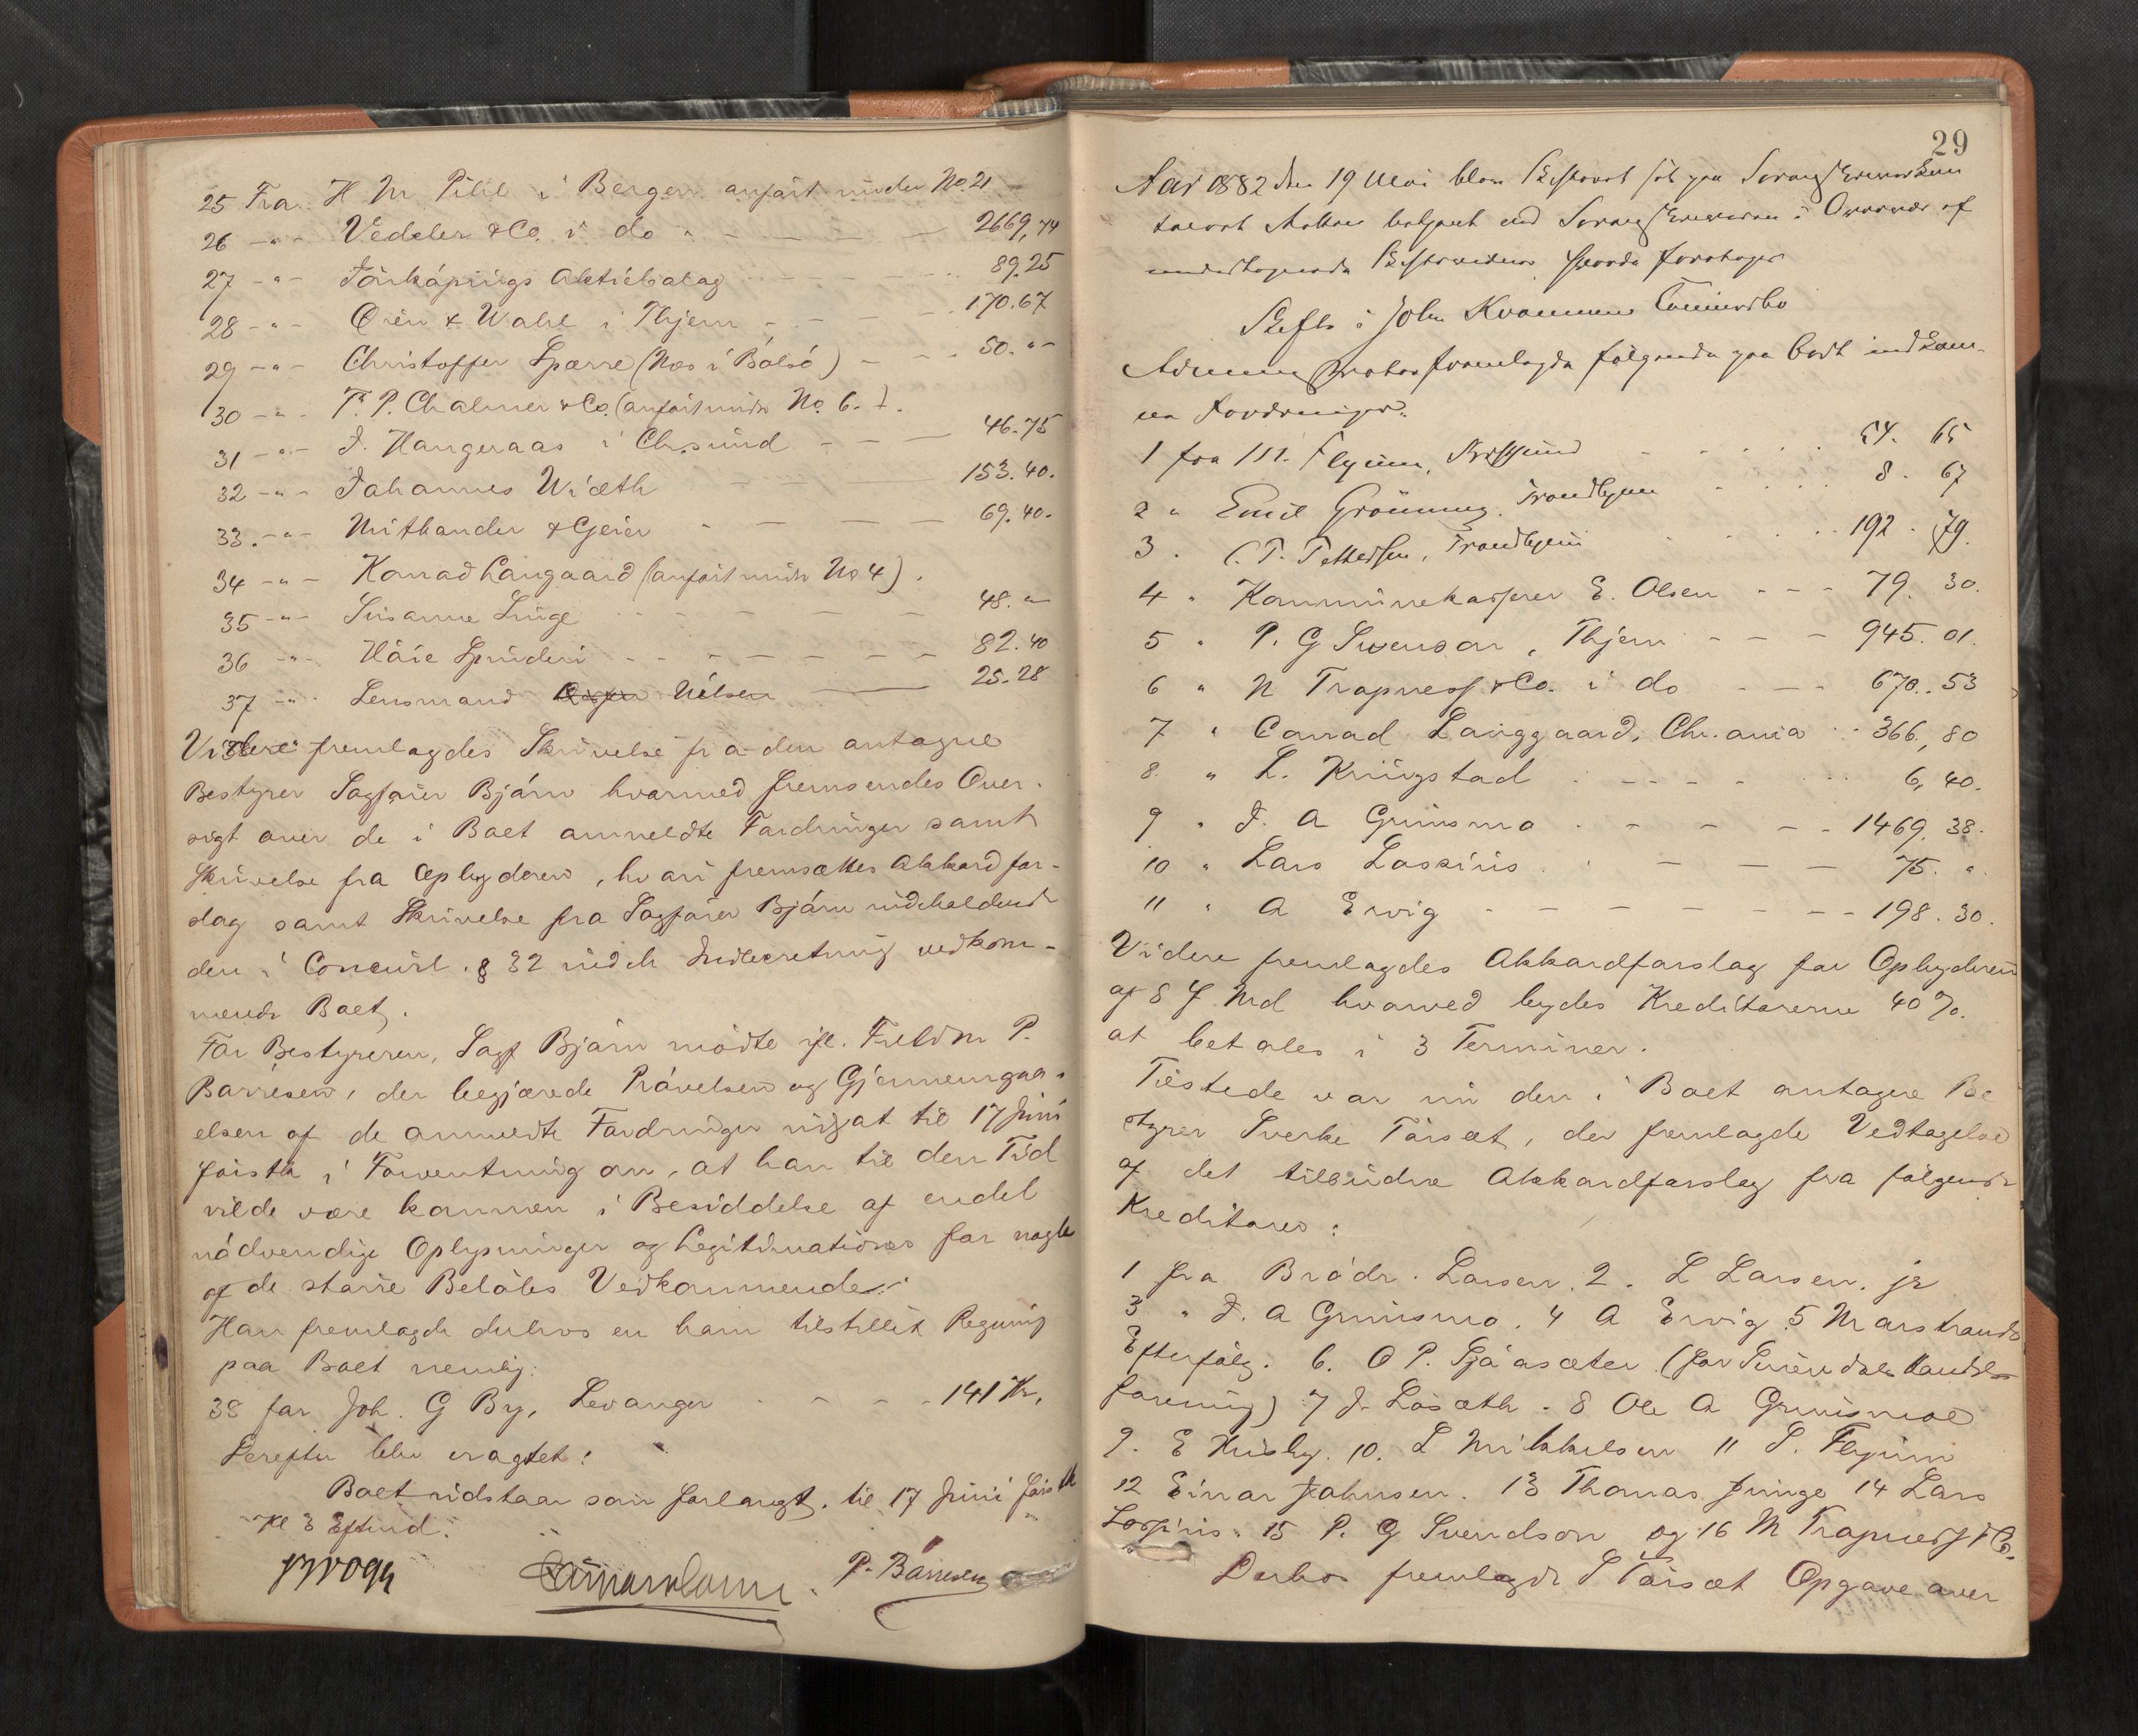 25 Fra H M Pihl i Bergen anført under No. 21
26 -"- Vedeler & Co. i do - 2669,74
27 -"- Jönköpings Aktiebolag 89.25
28 -"- Ören & Wahl i Thjem 170.67
29 -"- Christoffer Sparre (Næs i Bolsö) 50."-
30 -"- T. P. Chalmer & Co. (anført under No. 6.)
31 -"- J. Hangeraas i Chrsund 46.75
32 -"- Johannes Wiæth 153.40.
33. -"- Mithander & Geier 69.40.
34 -"- Konrad Langaard (anført under No 4).
35 -"- Susanne Linge 48."-
36 -"- Höie Spinderi 82.40
37 -"- Lensmand Nilsen 25.28
Videre fremlagdes Skrivelse fra den antagne
Bestyrer Sagfører Bjørn hvormed fremsendes Over-
sigt over de i Boet anmeldte Fordringer samt
Skrivelse fra Opbyderen, hvori fremsættes Akkordfor-
slag samt Skrivelse fra Sagfører Bjørn indeholdende
den i Concursl. § 32 Indberetning vedkom-
mende Boet.
For Bestyreren, Sagf Bjørn mødte P.
Barresen, der begjærede Prøvelsen og Gjennemgaa-
elsen af de anmeldte Fordringer udsat til 17 Juni
først i Forventning om, at han til den Tid
vilde være kommen i Besiddelse af endel
nødvendige Oplysninger og Legitimationer for nogle
af de større Beløbs Vedkommende.
Han fremlagde derhos en ham tilstillet Regning
paa Boet nemlig:
38 for Joh. G By, Levanger 141 Kr,
Derefter blev eragtet:
Boet udstaar som forlangt til 17 Juni først
Kl 3 Eftmd.
P. Barresen
29
Aar 1882 den 19 Mai blev Skifteret sat paa Sorenskriverkon
toret Molten betjent ved Sorenskriveren i Overvær af
undertegnede Skiftevidner hvorda foretoges
Skifte i John Kvammen
fremlagde følgende paa Boet indkom-
ne Fordringer:
1 fra M. Flyum, Kristsund 54. 65
2 " Emil Grönning. Trondhjem 8. 67
3. C. T. Pettersen, Trondhjem 192. 79.
4 " Kommunekasserer E. Olsen 79. 30.
5 " P. G Swenson, Thjem 945. 01.
6 " N Trapness & Co. i do 670. 53
7 " Conrad Langgaard, Chr.ania 366,80
8. " L. Kringstad 6,40.
9 " J. A Grimsmo 1469. 38.
10 " Lars Lossius 75. "
11 " A Ervig 198. 30.
Videre fremlagdes Akkordforslag for Opbyderen
af 8 f. Md hvorved bydes Kreditorerne 40 %.
at betales i 3 Terminer.
Tilstede var nu den i Boet antagne Be
styrer Sverke Törset, der fremlagde Vedtagelse
af det tilbudne Akkordforslag fra følgende
Kreditorer:
1 fra Brödr. Larsen. 2. L Larsen. jr
3 " J. A Grimsmo. 4 A Ervig. 5 Marstrands
Efterfölg. 6. O P. Sjöasæter (for Surendals Handels
forening) 7 J. Losæth. 8 Ole A Grimsmoe
9. E Husby. 10. L Mikkelsen 11 S. Flyum
12 Einar Johnsen. 13 Thomas Junge 14 Lars
Lossius. 15 P. G Svendson og 16 M Trapness & Co.
Derhos fremlagde S Törset Opgave over